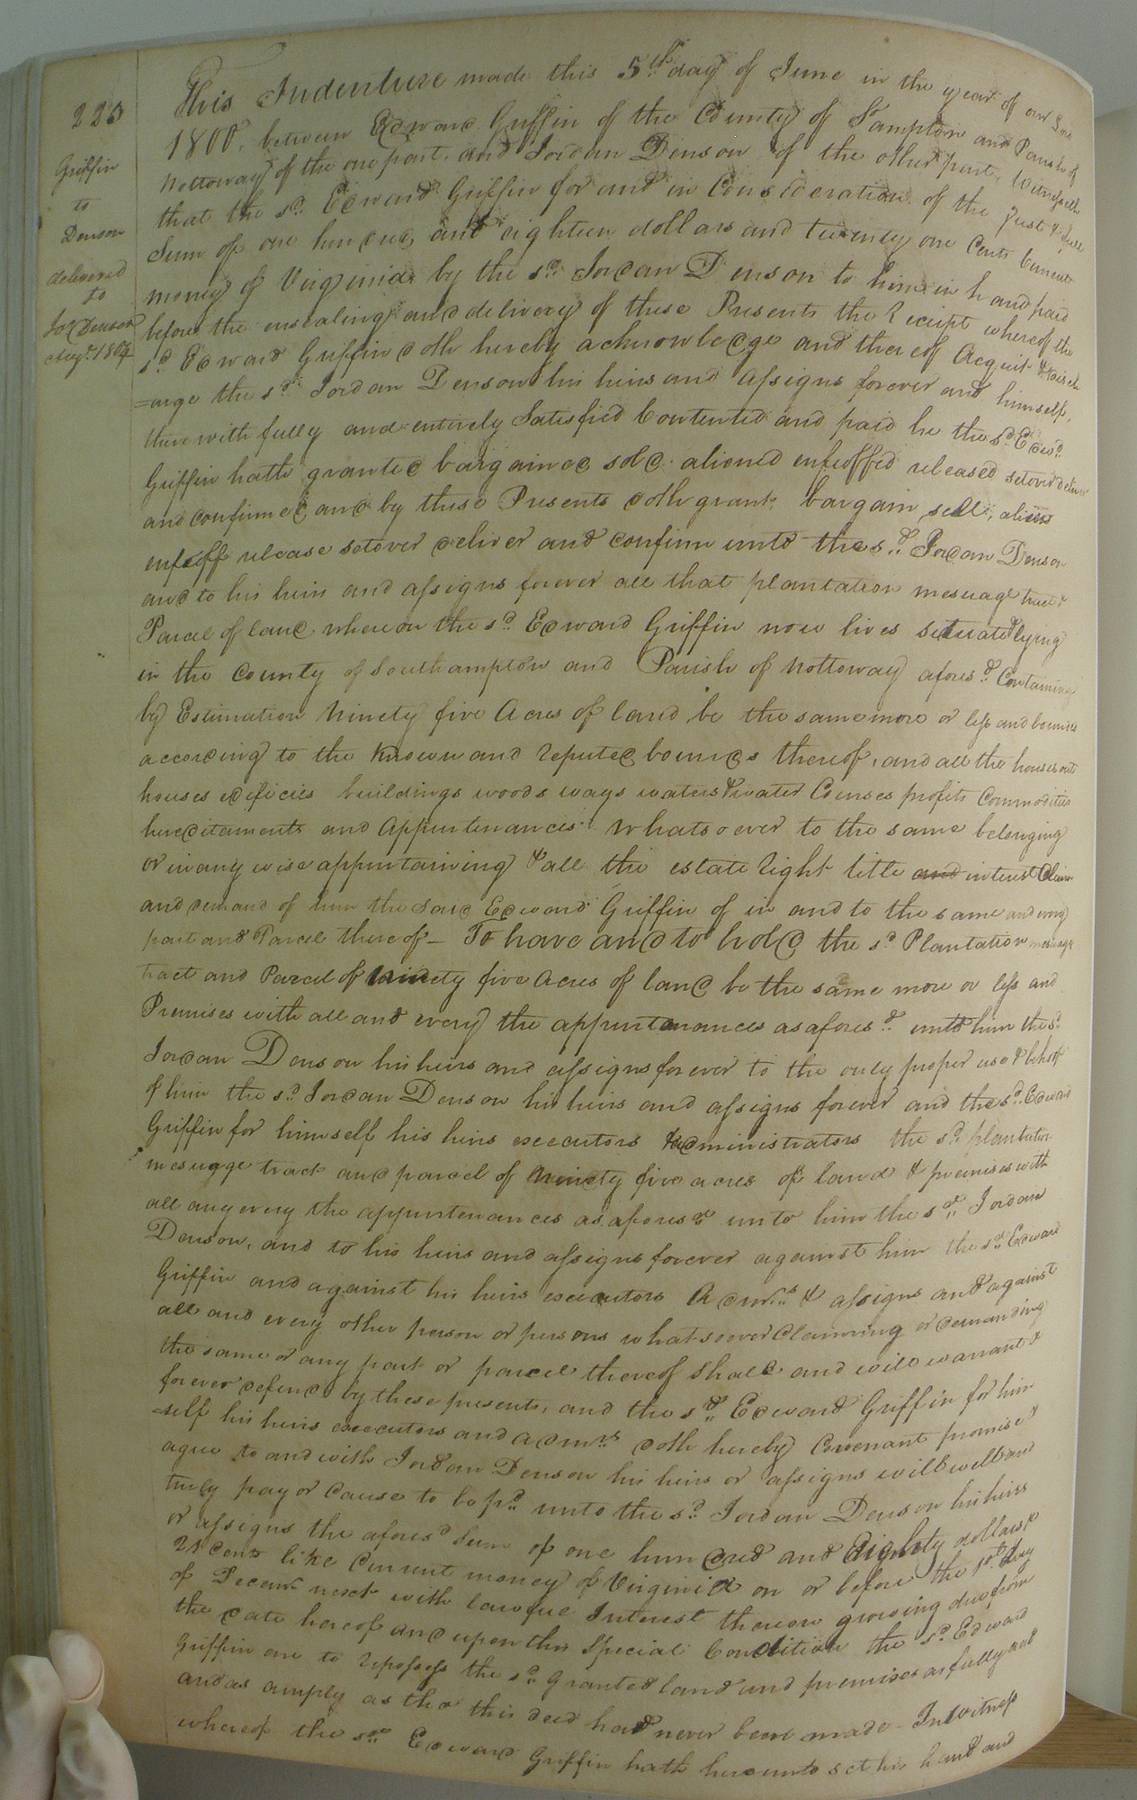 223
Griffin
to
Denson
delivered
to
Jor Denson
Augt. 1804
This Indenture made this 5th day of June in the year of our Lord
1800, between Edward Griffin of the County of S'ampton and Parish of
Nottoway of the one part. and Jordan Denson of the other part, Witnesseth
that the sd. Edward Griffin for and in Consideration of the Just & full
Sum of one hundred and eighteen dollars and twenty one Cents Current
money of Virginia by the sd. Jordan Denson to him in hand paid
before the ensealing and delivery of these Presents the Receipt whereof the
sd Edward Griffin doth hereby acknowledge and thereof Acquit & disch
=arge the sd. Jordan Denson his heirs and assigns forever and himself,
therewith fully and entirely Satisfied Contented and paid he the sd Edwd.
Griffin hath granted bargained sold aliened enfeoffed released setover deliver
and confirmed and by these Presents doth grant, bargain, sell, alien
enfeoff release setover deliver and confirm unto the sd. Jordan Denson
and to his heirs and assigns forever all that plantation mesuage tract &
Parcel of land whereon the sd. Edward Griffin now lives situate & lying
in the County of Southampton and Parish of Nottoway aforesd. Containing
by Estimation Ninety five Acres of land be the same more or less and bounded
according to the known and reputed bounds thereof, and all the houses out
houses edificies buildings woods ways waters & water Courses profits Commodities
hereditaments and Appurtenances whatsoever to the same belonging
or in any wise appurtaining & all the estate right title and interest Claim
and demand of him the said Edward Griffin of in and to the same and every
part and Parcel thereof— To have and to hold the sd Plantation mesuage
tract and Parcel of Ninety five Acres of land be the same more or less and
Premises with all and every the appurtenances as aforesd. unto him the sd.
Jordan Denson his heirs and assigns forever to the only proper use & behoof
of him the sd. Jordan Denson his heirs and assigns forever and the sd. Edward
Griffin for himself his heirs executors & administrators the sd. plantation
mesugge tract and parcel of Ninety five acres of land & premises with
all any every the appurtenances as aforesd unto him the sd. Jordan
Denson, and to his heirs and assigns forever against him the sd. Edward
Griffin and against his heirs executors Admrs. & assigns and against
all and every other person or persons whatsoever Claiming or demanding
the same or any part or parcel thereof shall and will warrant &
forever defend by these presents, and the sd. Edward Griffin for him
=self his heirs executors and admrs doth hereby Covenant promise &
agree to and with Jordan Denson his heirs or assigns will well and
truly pay or Cause to be pd. unto the sd. Jordan Denson his heirs
or assigns the aforesd Sum of one hundred and Eighty dollars &
21 Cents like Current money of Virginia on or before the 10th. day
of Decemr. next with lawful Interest thereon growing due from
the date hereof and upon this Special Condition the sd. Edward
Griffin are to repossess the sd. Granted land and premises as fully and
and as amply as tho this deed had never been made - In witness
whereof the sd. Edward Griffin hath hereunto set his hand and